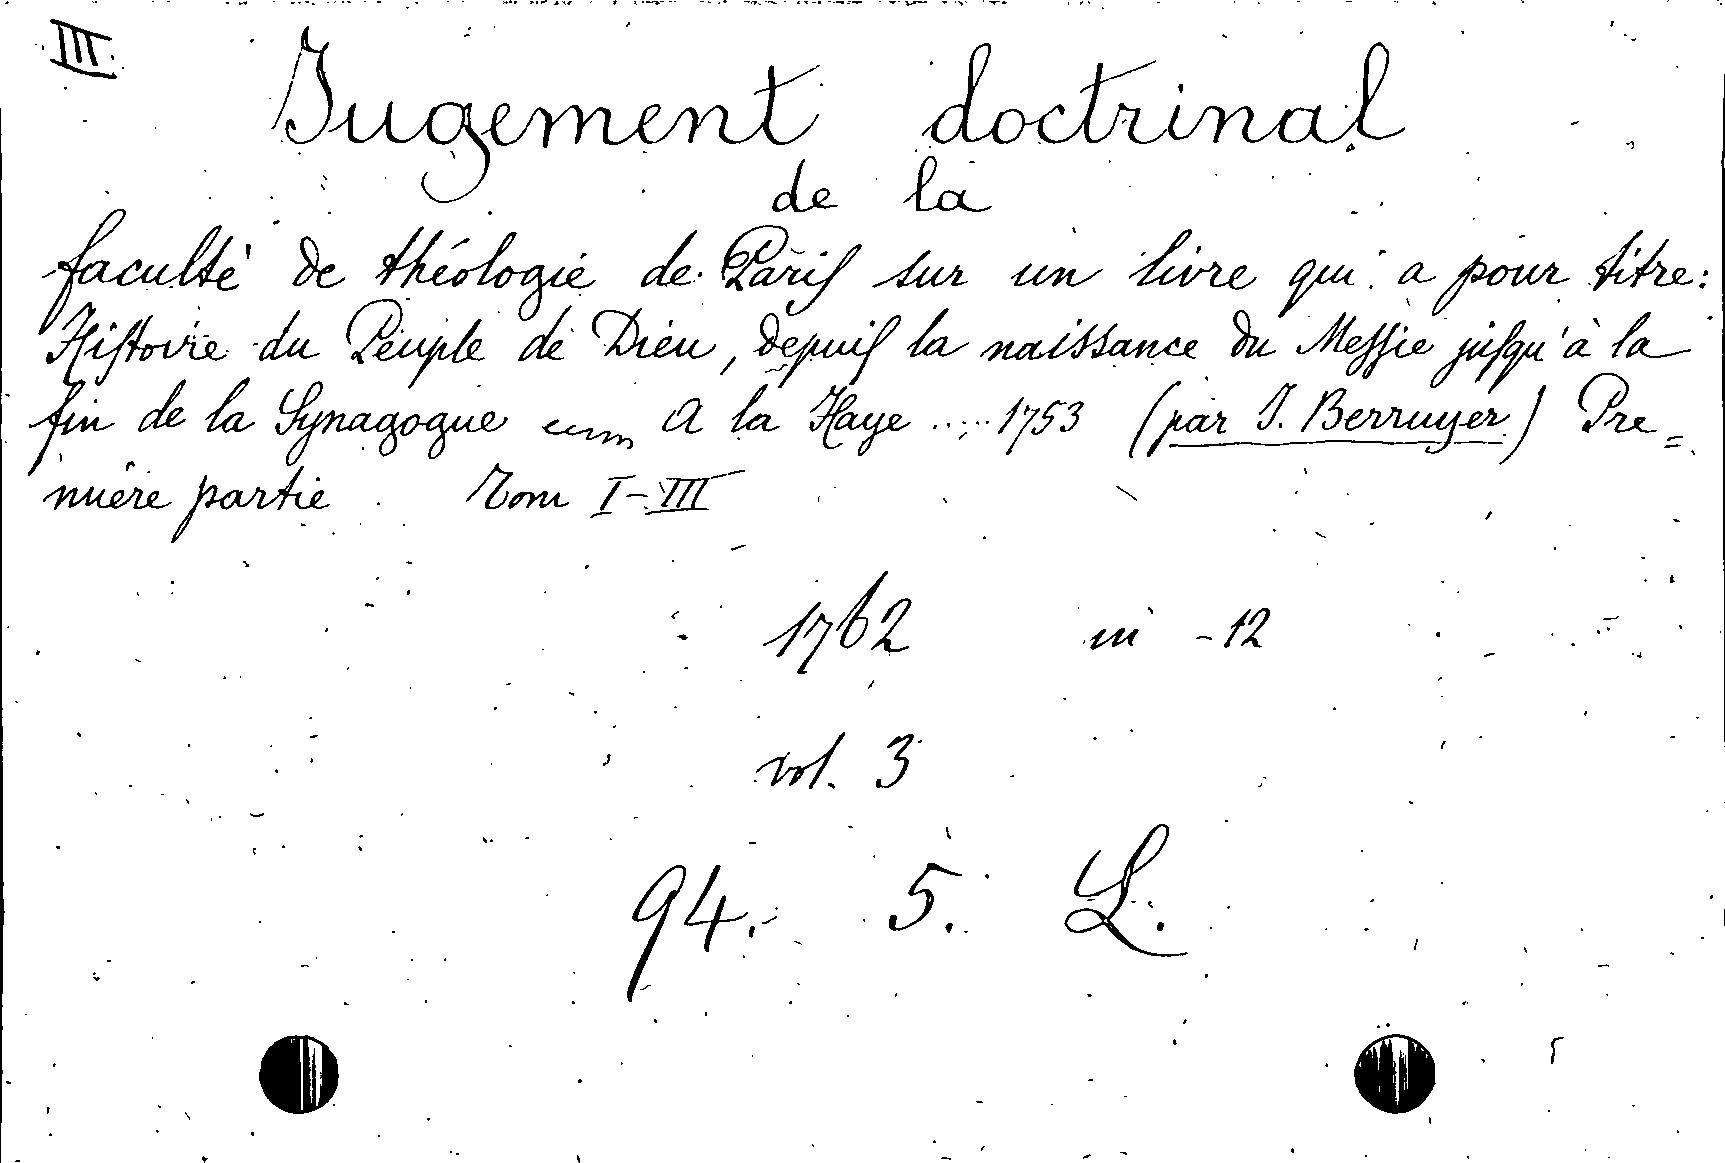 III.
Jugement doctrinal
de la
faculté de théologie de Paris sur un livre qui a pour titre:
Histoire du Peuple de Dieu, depuis la naissance du Messie jusqu'à la
fin de la Synagogue A la Haye .... 1753 (par J. Berruyer) Pre=
mière partie Tom I-III
1762 in -12
vol. 3
94. 5. L.